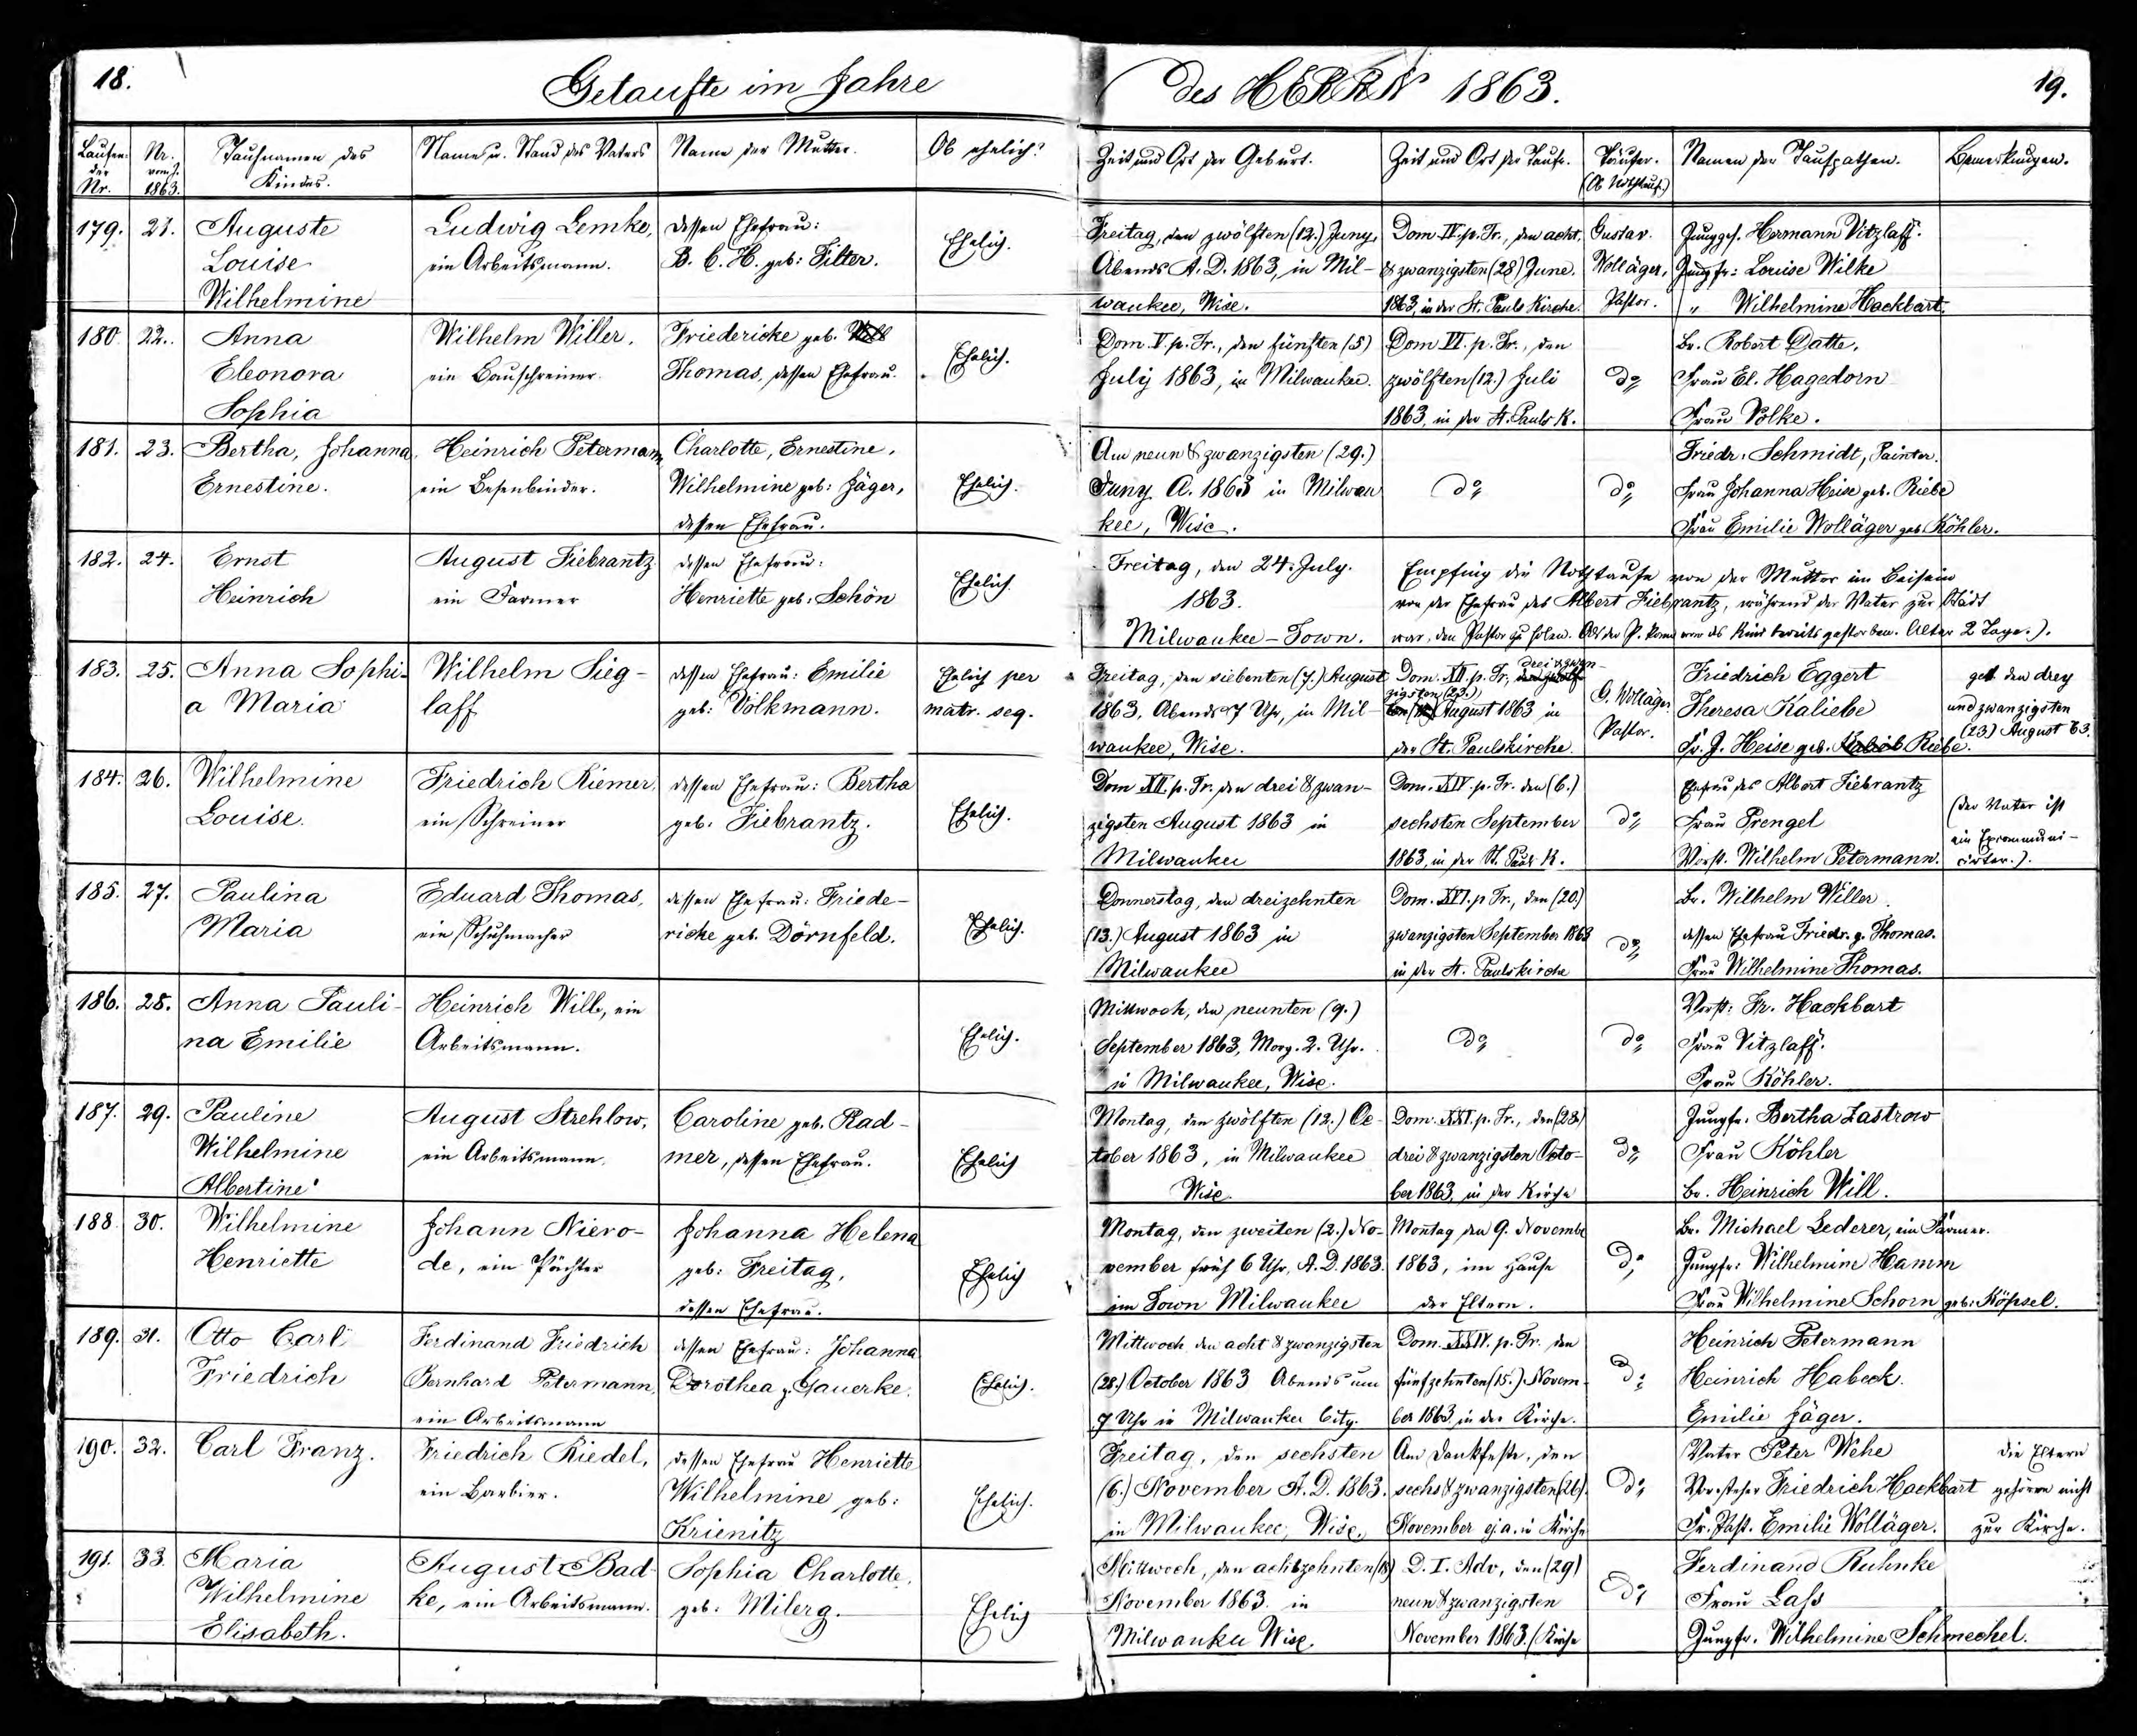 18.
Getaufte im Jahre
des HERRN 1863.
19.
Laufen-
der
Nr.
Nr.
vom J.
1863.
Taufnamen des
Kindes.
Name u. Stand des Vaters
Name der Mutter.
Ob ehelich?
Zeit und Ort der Geburt.
Zeit und Ort der Taufe.
Täufer.
(Ob Nothtaufe.)
Namen der Taufpathen.
Bemerkungen.
179.
21.
Auguste
Louise
Wilhelmine
Ludwig Lemke,
ein Arbeitsmann.
dessen Ehefrau:
B. C. H. geb: Filter.
Ehelich.
Freitag, den zwölften (12.) Juny,
Abends A. D. 1863, in Mil-
waukee, Wisc.
Dom. IV. p. Tr., den acht
& zwanzigsten (28) June.
1863, in der St. Pauls Kirche.
Gustav
Wolläger,
Pastor.
Junggs. Hermann Vitzlaff.
Jungfr: Louise Wilke
" Wilhelmine Hackbart.
180.
22.
Anna
Eleonora
Sophia
Wilhelm Willer,
ein Bauschreiner.
Friedericke geb.
Thomas, dessen Ehefrau.
Ehelich.
Dom. V. p. Tr., den fünften (5)
July 1863, in Milwaukee.
Dom VI. p. Tr., den
zwölften (12.) Juli
1863, in der St. Pauls K.
do
Br. Robert Datte,
Frau El. Hagedorn
Frau Volke.
181.
23.
Bertha, Johanna,
Ernestine.
Heinrich Petermann,
ein Besenbinder.
Charlotte, Ernestine,
Wilhelmine geb: Jäger,
dessen Ehefrau.
Ehelich.
Am neun & zwanzigsten (29.)
Juny A. 1863 in Milwau
kee, Wisc.
do
do
Friedr. Schmidt, Painter.
Frau Johanna Heise geb. Riebe
Frau Emilie Wolläger geb Köhler.
182.
24.
Ernst
Heinrich
August Fiebrantz
ein Farmer
dessen Ehefrau:
Henriette geb: Schön
Ehelich.
Freitag, den 24. July.
1863.
Milwaukee-Town.
Empfing die Nothtaufe von der Mutter im Beisein
von der Ehefrau des Albert Fiebrantz, während der Vater zur Stadt
war, den Pastor zu holen. Als der P. kam war das Kind bereits gestorben. Alter 2 Tage.).
183.
25.
Anna Sophi-
a Maria
Wilhelm Sieg-
laff
dessen Ehefrau: Emilie
geb: Volkmann.
Ehelich per
matr. seq.
Freitag, den siebenten (7.) August
1863, Abends 7 Uhr, in Mil
waukee, Wisc.
Dom. XII. p. Tr, drei & zwan-
zigsten (23.) August 1863 in
der St. Paulskirche.
G. Wolläger
Pastor.
Friedrich Eggert
Theresa Kaliebe
Fr. J. Heise geb. Riebe.
get. den drey
und zwanzigsten
(23) August 63.
184.
26.
Wilhelmine
Louise.
Friedrich Riemer,
ein Schreiner
dessen Ehefrau: Bertha
geb. Fiebrantz.
Ehelich.
Dom XII. p. Tr. den drei & zwan-
zigsten August 1863 in
Milwaukee
Dom. XIV p. Tr. den (6.)
sechsten September
1863, in der St. Pauls K.
do
Ehefrau des Albert Fiebrantz
Frau Prengel
Vorst. Wilhelm Petermann.
(der Vater ist
ein Excommuni-
cirter.).
185.
27.
Paulina
Maria
Eduard Thomas,
ein Schuhmacher
dessen Ehefrau: Friede-
ricke geb. Dörnfeld.
Ehelich.
Donnerstag, den dreizehnten
(13.) August 1863 in
Milwaukee
Dom. XVI. p Tr., den (20.)
zwanzigsten September 1863
in der St. Paulskirche
do
Br. Wilhelm Willer
dessen Ehefrau Friedr. g. Thomas.
Frau Wilhelmine Thomas.
186.
28.
Anna Pauli-
na Emilie
Heinrich Will, ein
Arbeitsmann.
Ehelich.
Mittwoch, den neunten (9.)
September 1863, Morg. 2. Uhr.
in Milwaukee, Wisc.
do
do
Vorst: Fr. Hackbart
Frau Vitzlaff.
Frau Köhler.
187.
29.
Pauline
Wilhelmine
Albertine
August Strehlow,
ein Arbeitsmann.
Caroline geb. Rad-
mer, dessen Ehefrau.
Ehelich
Montag, den zwölften (12.) Oc-
tober 1863, in Milwaukee
Wisc.
Dom. XXI. p. Tr., den (28)
drei & zwanzigsten Octo-
ber 1863, in der Kirche
do
Jungfr. Bertha Zastrow
Frau Köhler
Br. Heinrich Will.
188.
30.
Wilhelmine
Henriette
Johann Niero-
de, ein Pächter
Johanna Helena
geb: Freitag,
dessen Ehefrau.
Ehelich
Montag, den zweiten (2.) No-
vember früh 6 Uhr, A. D. 1863.
im Town Milwaukee
Montag den 9. Novembr
1863, im Hause
der Eltern.
do
Br. Michael Lederer, ein Farmer.
Jungfr: Wilhelmine Hamm
Frau Wilhelmine Schorn geb: Köpsel.
189.
31.
Otto Carl
Friedrich
Ferdinand Friedrich
Bernhard Petermann,
ein Arbeitsmann
dessen Ehefrau: Johanna
Dorothea g. Gauerke.
Ehelich.
Mittwoch den acht & zwanzigsten
(28.) October 1863 Abends um
7 Uhr in Milwaukee City.
Dom. XXIV. p. Tr. den
fünfzehnten (15.) Novem-
ber 1863 in der Kirche.
do
Heinrich Petermann
Heinrich Habeck.
Emilie Jäger.
190.
32.
Carl Franz.
Friedrich Riedel,
ein Barbier.
dessen Ehefrau Henriette
Wilhelmine geb:
Krienitz
Ehelich.
Freitag, den sechsten
(6.) November A. D. 1863.
in Milwaukee, Wisc.
Am Dankfeste, den
sechs & zwanzigsten (26).
November ej. a. in Kirche
do
Vater Peter Wehe
Vorsteher Friedrich Hackbart
Fr. Past. Emilie Wolläger.
Die Eltern
gehören nicht
zur Kirche.
191.
33.
Maria
Wilhelmine
Elisabeth.
August Bad-
ke, ein Arbeitsmann.
Sophia Charlotte,
geb: Milerg.
Ehelich
Mittwoch, den achtzehnten (18)
November 1863. in
Milwaukee Wisc.
D. I. Adv, den (29)
neun & zwanzigsten
November 1863. Kirche
do
Ferdinand Ruhnke
Frau Lass
Jungfr. Wilhelmine Schmechel.